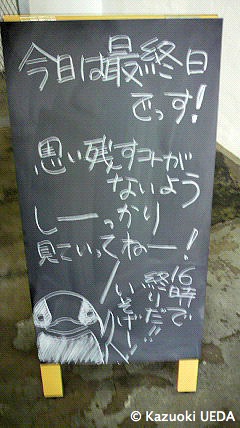 今日は最終日
でっす!
思い残すコトが
ないよう
しーっかり
見ていってねー!
16時で
終りだ!!
いそげー!
© Kazuoki UEDA